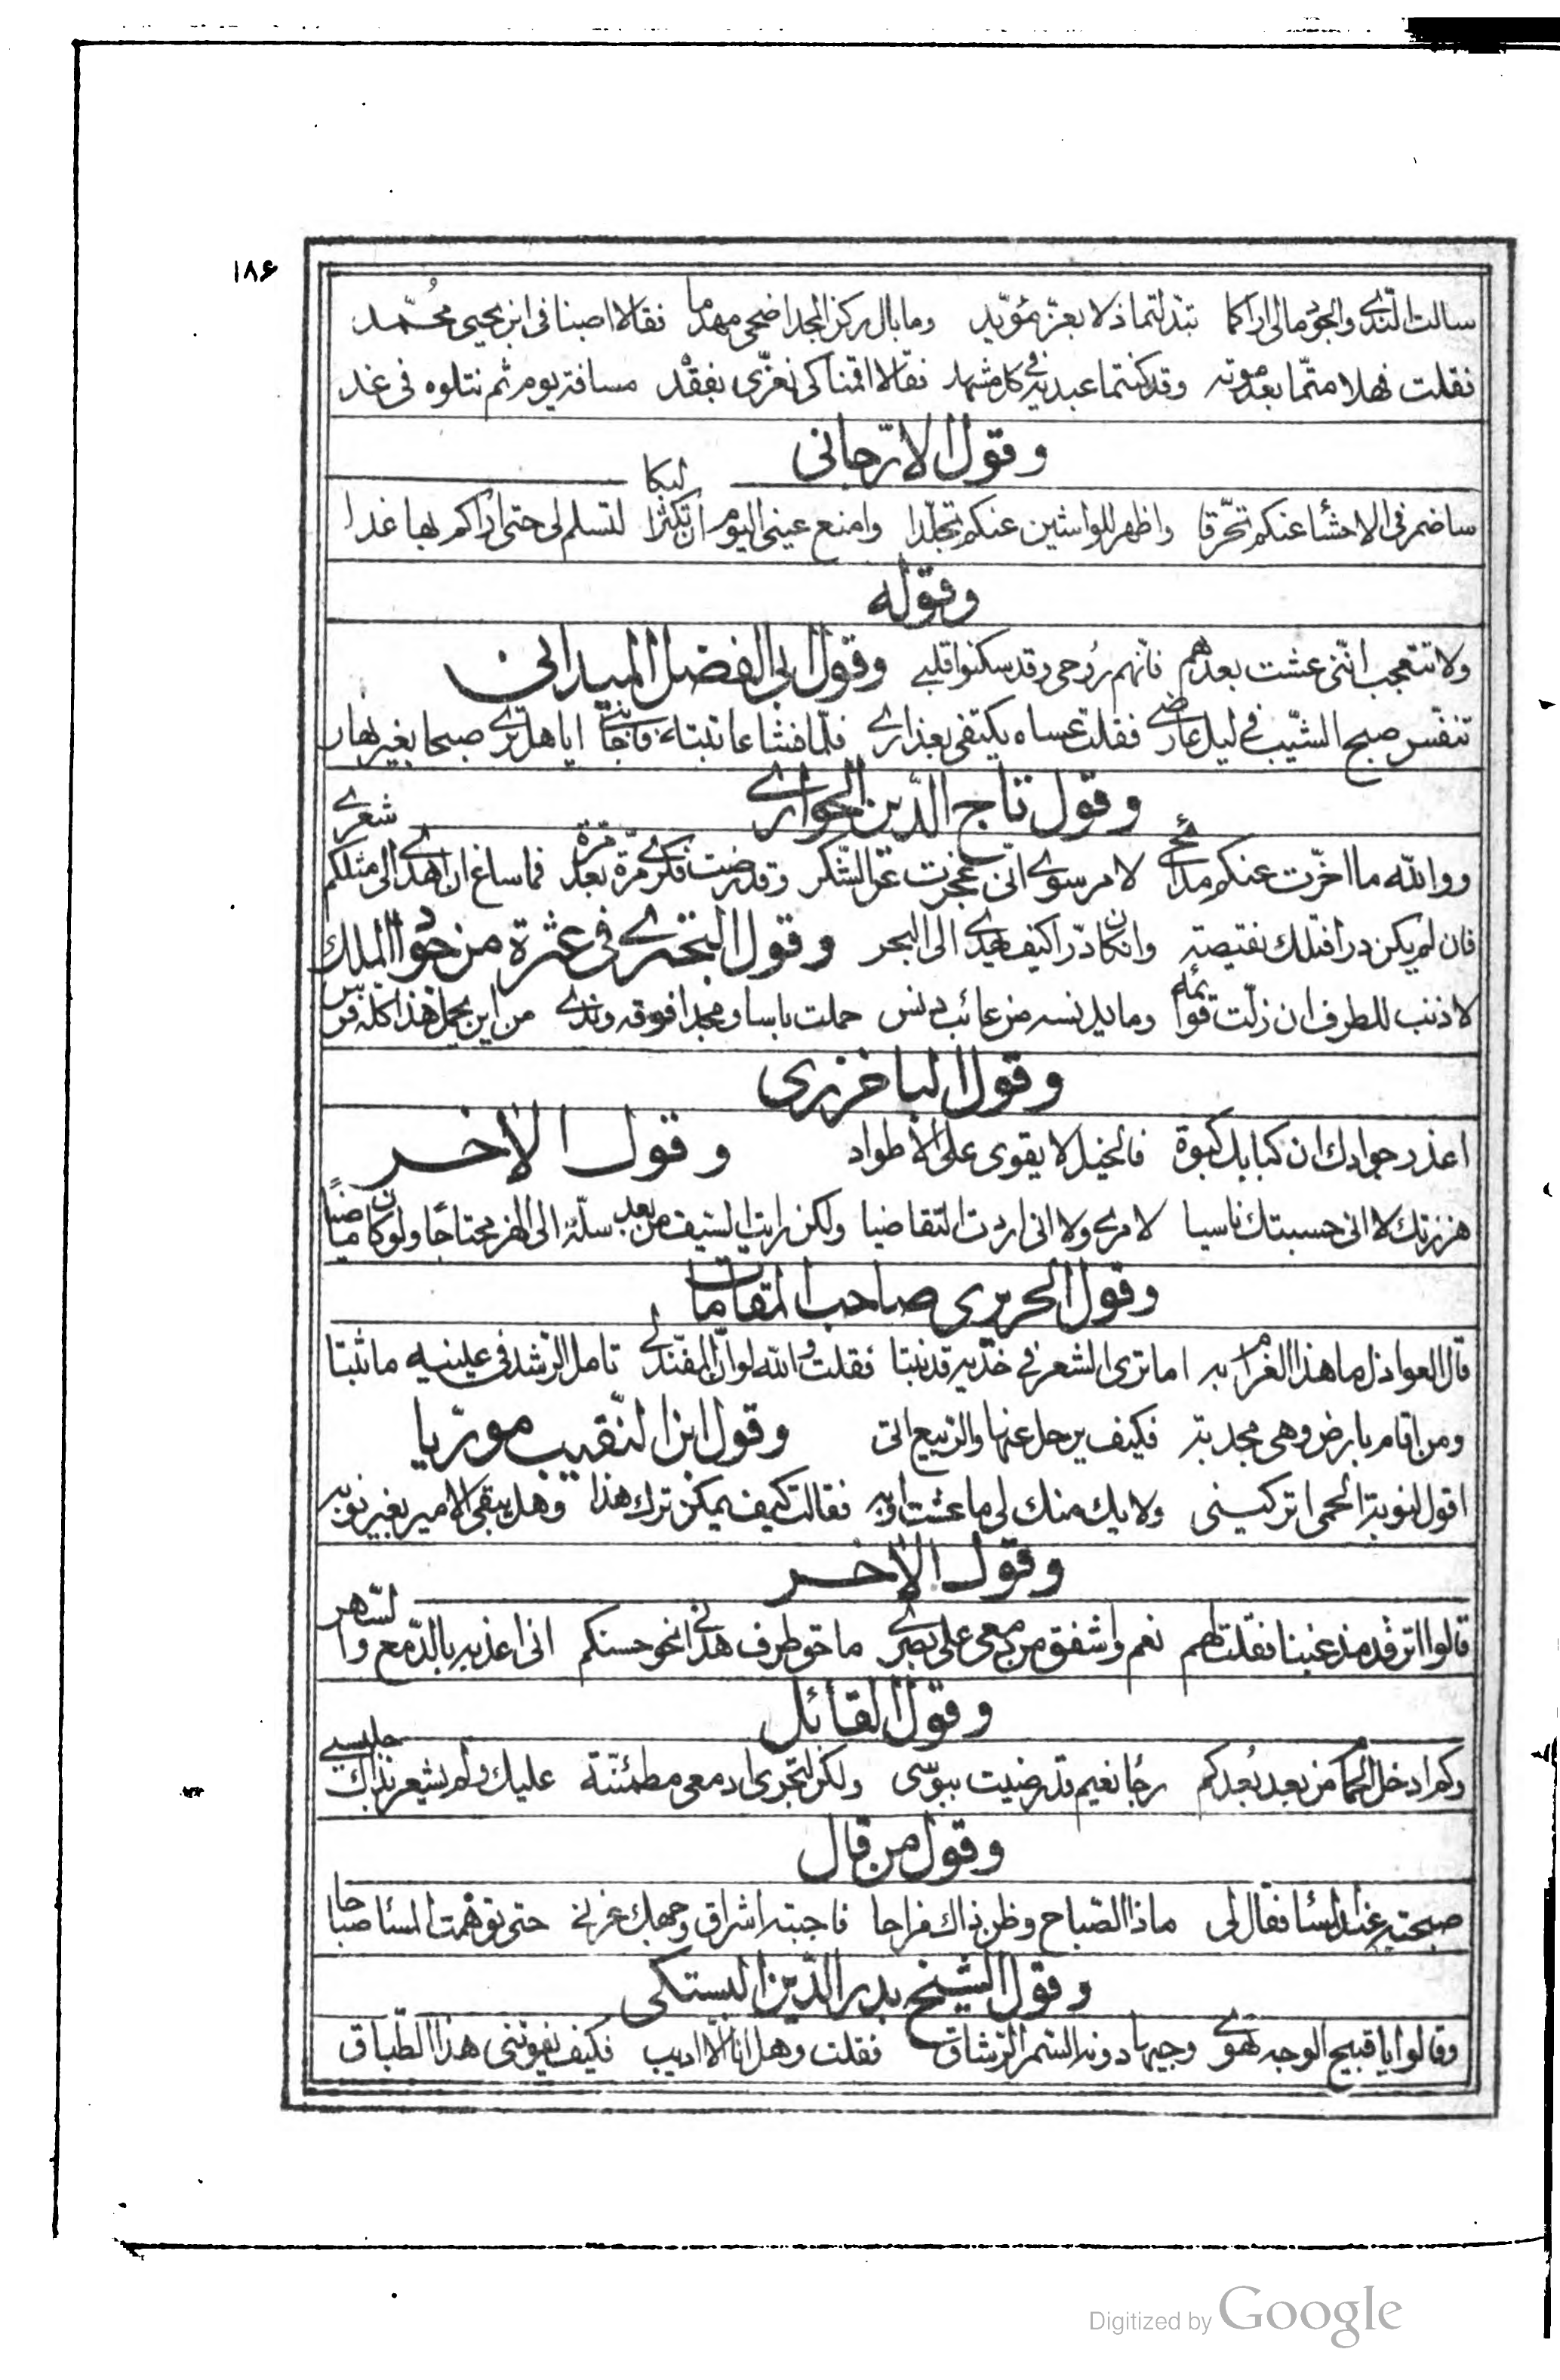 ۱۸۶
سالت الندى والجود مالى اراكما تبدلتما ذلا بعز مؤبد وما بال ركن المجد اضحى مهدما فقالا اصبنا فى ابن يحيى محمد
فقلت فهلا متما بعد موته وقد كنتما عبديه فى كل مشهد فقالا اقمنا كى نعزى بفقده مسافة يوم ثم نتلوه فى غد
وقول الارجانى
ساضمر فى الاحشا عنكم تحرقا واظهر للواشين عنكم تجلدا وامنع عينى اليوم ان تكثر البكا لتسلم لى حتى اراكم بها غدا
وقوله
ولا تتعجب اننى عشت بعدهم فانهم روحى وقد سكنوا قلبى وقول ابى الفضل الميدانى
تنفس صبح الشيب فى ليل عارضى فقلت عساه يكتفى بعذارى فلما فشا عاتبته فاجابنى ايا هل ترى صبحا بغير نهار
وقول تاج الدين الحوارى
ووالله ما اخرت عنكم مدائحى لامر سوى انى عجزت عن الشكر وقد رضت فكرى مرة بعد مرة فما ساغ ان اهدى الى مثلكم شعرى
فان لم يكن درا فتلك نقيصة وان كان درا كيف يهدى الى البحر وقول البحترى فى عثرة من جواد الملك
لا ذنب للطرف ان زلت قوائمه وما يدنسه من عائب دنس حملت باسا ومجدا فوقه وندى من اين يحمل هذا كله فرس
وقول الباخرزى
اعذر جوادك ان كبا بك كبوة فالخيل لا يقوى على الاطواد وقول الاخر
هززتك لا انى حسبتك ناسيا لامرى ولا انى اردت التقاضيا ولكن رايت السيف من بعد سله الى الهز محتاجا ولو كان ماضيا
وقول الحريرى صاحب المقامات
قال العواذل ما هذا الغرام به اما ترى الشعر فى خديه قد نبتا فقلت والله لو ان المفند لى تامل الرشد فى عينيه ما ثبتا
ومن اقام بارض وهى مجدبة فكيف يرحل عنها والربيع اتى وقول ابن النقيب موريا
اقول لنوبة الحمى اتركينى ولا يك منك لى ما عشت اوبه فقالت كيف يمكن ترك هذا وهل يبقى الامير بغير نوبه
وقول الاخر
قالوا اترقد مذ غبنا فقلت لهم نعم واشفق من دمعى على بصرى ما حق طرف هدانى نحو حسنكم انى اعذبه بالدمع والسهر
وقول القائل
وكم ادخل الحمام من بعد بعدكم رجا نعيم قد رضيت ببوسى ولكن لتجرى ادمعى مطمئنة عليك ولم يشعر بذاك جليسى
وقول من قال
صبحته عند المسا فقال لى ماذا الصباح وظن ذاك مزاحا فاجبته اشراق وجهك غرنى حتى توهمت المسا صباحا
وقول الشيخ بدر الدين البستكى
وقالوا يا قبيح الوجه تهوى وجيها دونه السمر الرشاق فقلت وهل انا الا اديب فكيف يفوتنى هذا الطباق
Digitized by Google